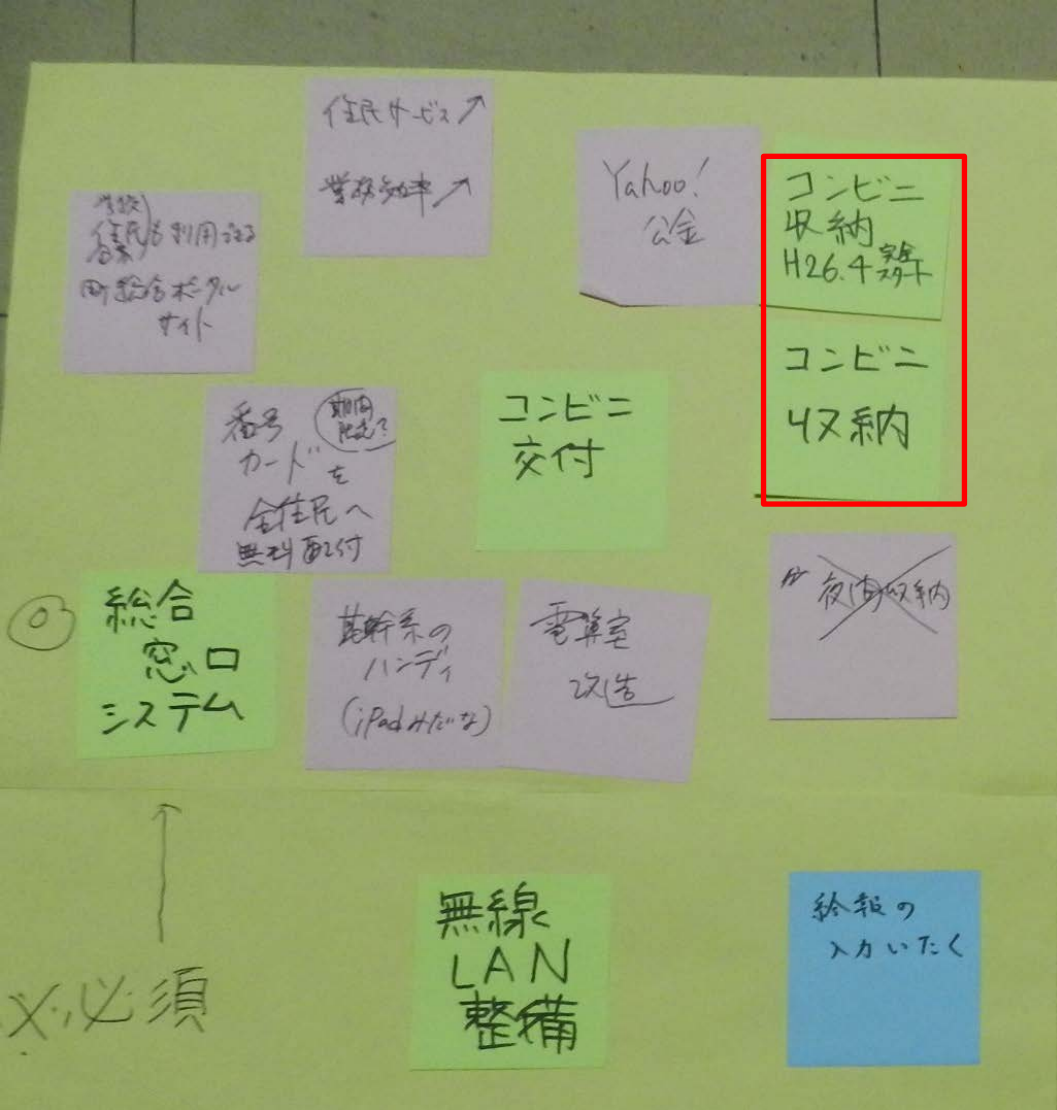 住民サービス↗
業務効率↗
Yahoo!
公金
コンビニ
収納
H26.4 完全
スタート
学校
住民も利用できる
企業
町総合ポータル
サイト
コンビニ
収納
番号
カードを
全住民へ
無料配付
期間
限定?
コンビニ
交付
夜間収納
総合
窓口
システム
基幹系の
ハンディ
(iPadみたいな)
電算室
改造
無線
LAN
整備
給報の
入力いたく
※必須